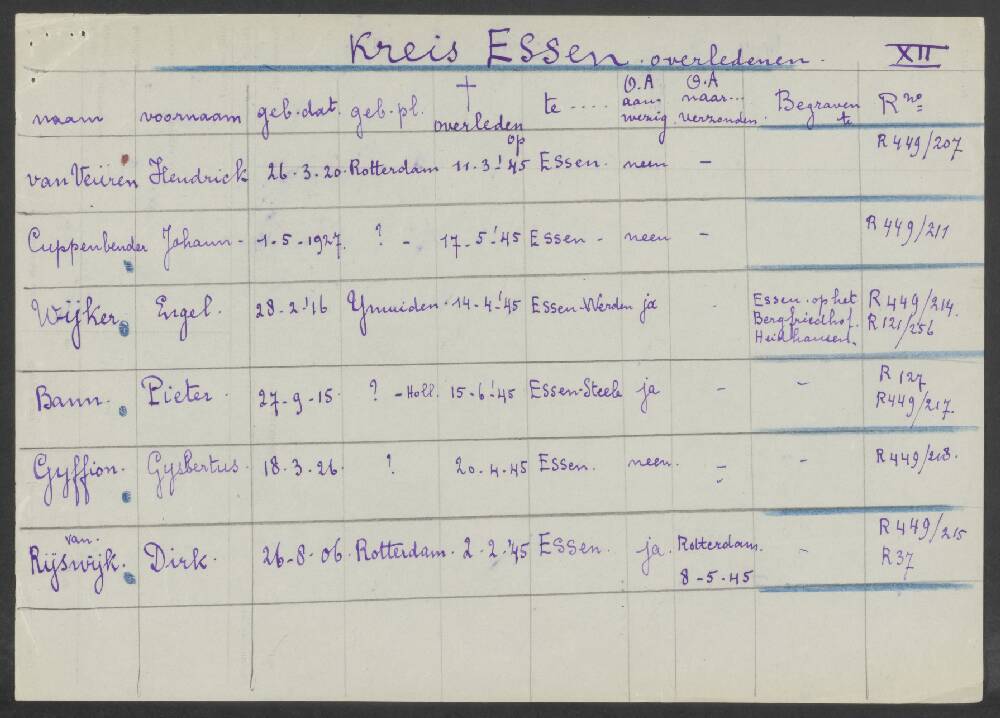 Kreis Essen. overledenen. XII
naam voornaam geb. dat. geb. pl. † overleden op te .... O.A aanwezig O.A naar... verzonden. Begraven te R no
van Veüren Hendrick 26.3.20. Rotterdam 11.3.'45 Essen. neen – R449/207
Cuppenbender Johann – 1.5-1927. ? – 17.5.'45 Essen – neen – R449/211
Wijker Engel. 28.2.'16 Ymuiden. 14-4-'45 Essen-Werden ja - Essen. op het Bergfriedhof. Heidhausen. R449/214. R121/256
Bann. Pieter. 27-9-15. ? – Holl. 15-6-'45 Essen-Steele ja – – R127 R449/217.
Gyffion. Gysbertus. 18.3.26. ? 20.4.45 Essen. neen. – – R449/218.
van. Rijswijk. Dirk. 26-8-06. Rotterdam. 2-2-'45 Essen. ja. Rotterdam. 8-5-45 – R449/215 R37